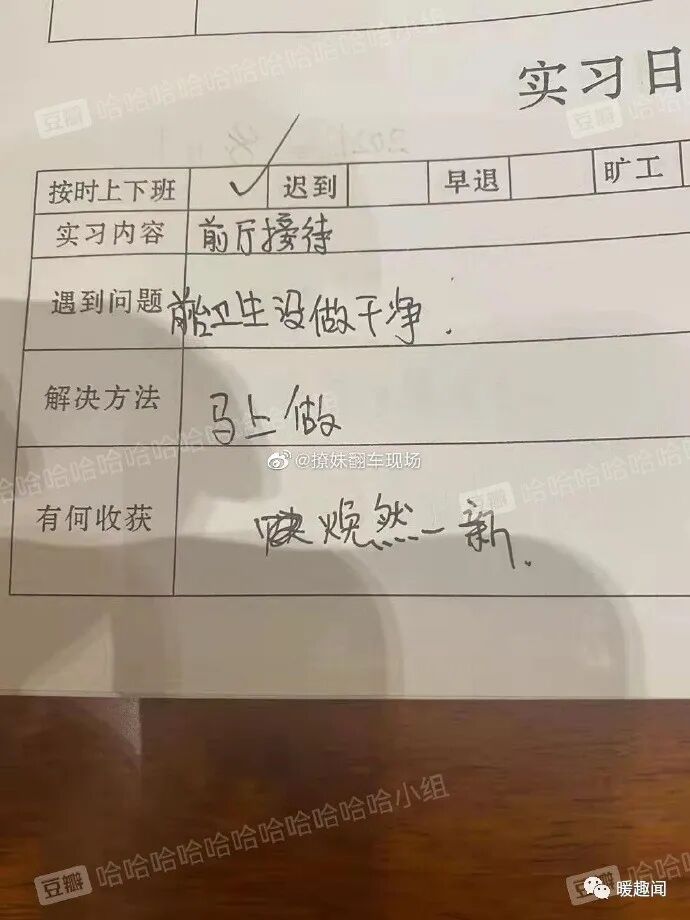 实习日
按时上下班 ✓ 迟到 早退 旷工
实习内容 前厅接待
遇到问题 前台卫生没做干净.
解决方法 马上做
@撩妹翻车现场
有何收获 焕然一新.
豆瓣 哈哈哈哈哈哈哈哈哈哈小组
暖趣闻